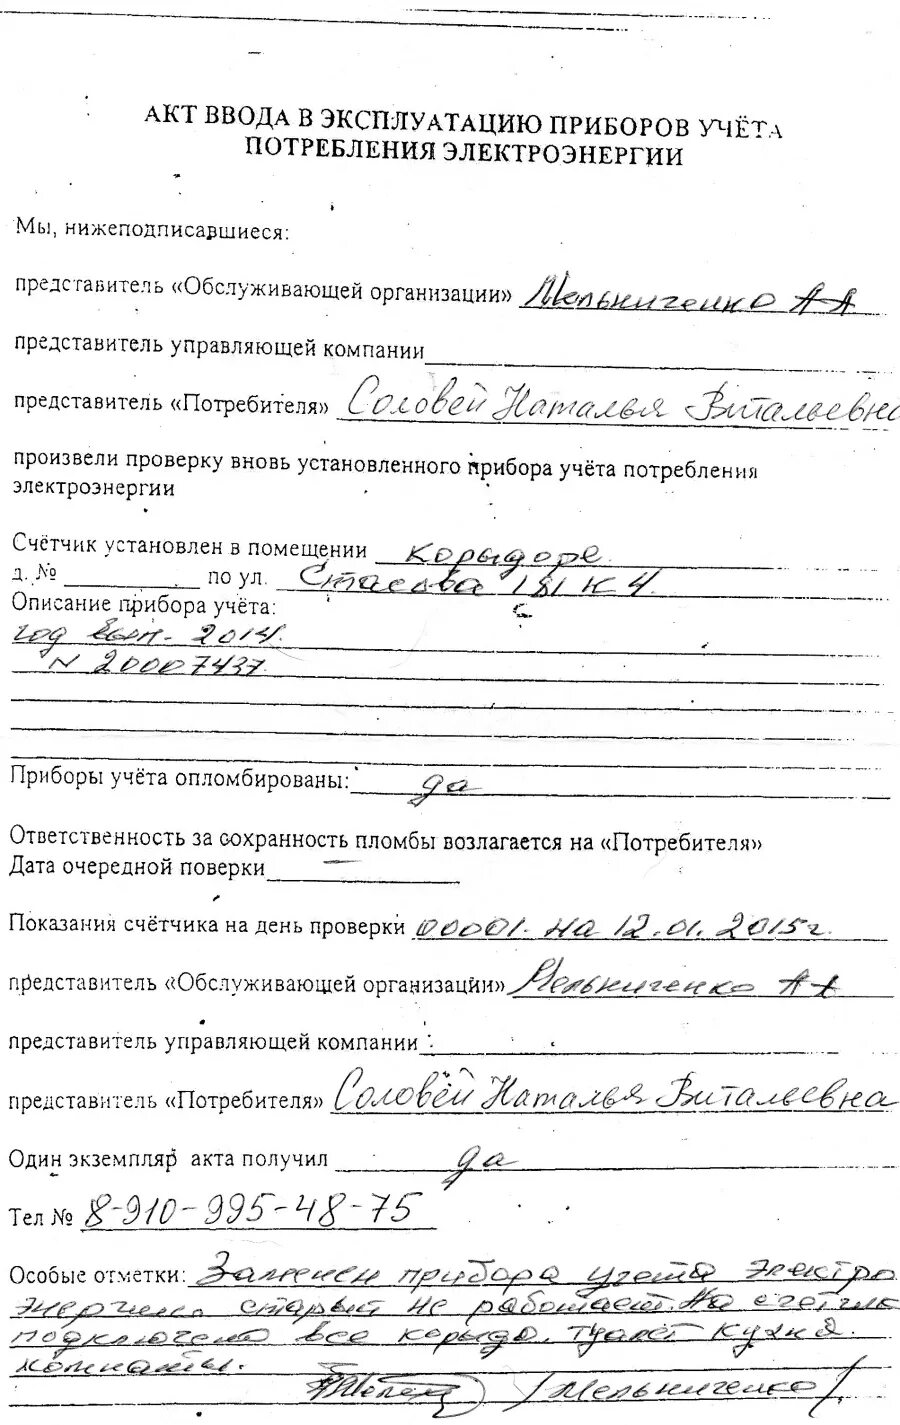 АКТ ВВОДА В ЭКСПЛУАТАЦИЮ ПРИБОРОВ УЧЁТА
ПОТРЕБЛЕНИЯ ЭЛЕКТРОЭНЕРГИИ
Мы, нижеподписавшиеся:
представитель «Обслуживающей организации» Мельниченко А А
представитель управляющей компании
представитель «Потребителя» Соловей Наталья Витальевна
произвели проверку вновь установленного прибора учёта потребления
электроэнергии
Счётчик установлен в помещении корыдоре
д. № по ул. Стасова 181 к 4.
Описание прибора учёта:
год вып. 2014.
N 20007437
Приборы учёта опломбированы: да
Ответственность за сохранность пломбы возлагается на «Потребителя»
Дата очередной поверки —
Показания счётчика на день проверки 00001. на 12.01.2015г.
представитель «Обслуживающей организации» Мельниченко А А
представитель управляющей компании
представитель «Потребителя» Соловей Наталья Витальевна
Один экземпляр акта получил да
Тел № 8-910-995-48-75
Особые отметки: Заменен прибора учета электро
энергии. старый не работает. На счетчик
подключено все корыдо. туалет кухня.
комнаты.
/Мельниченко/